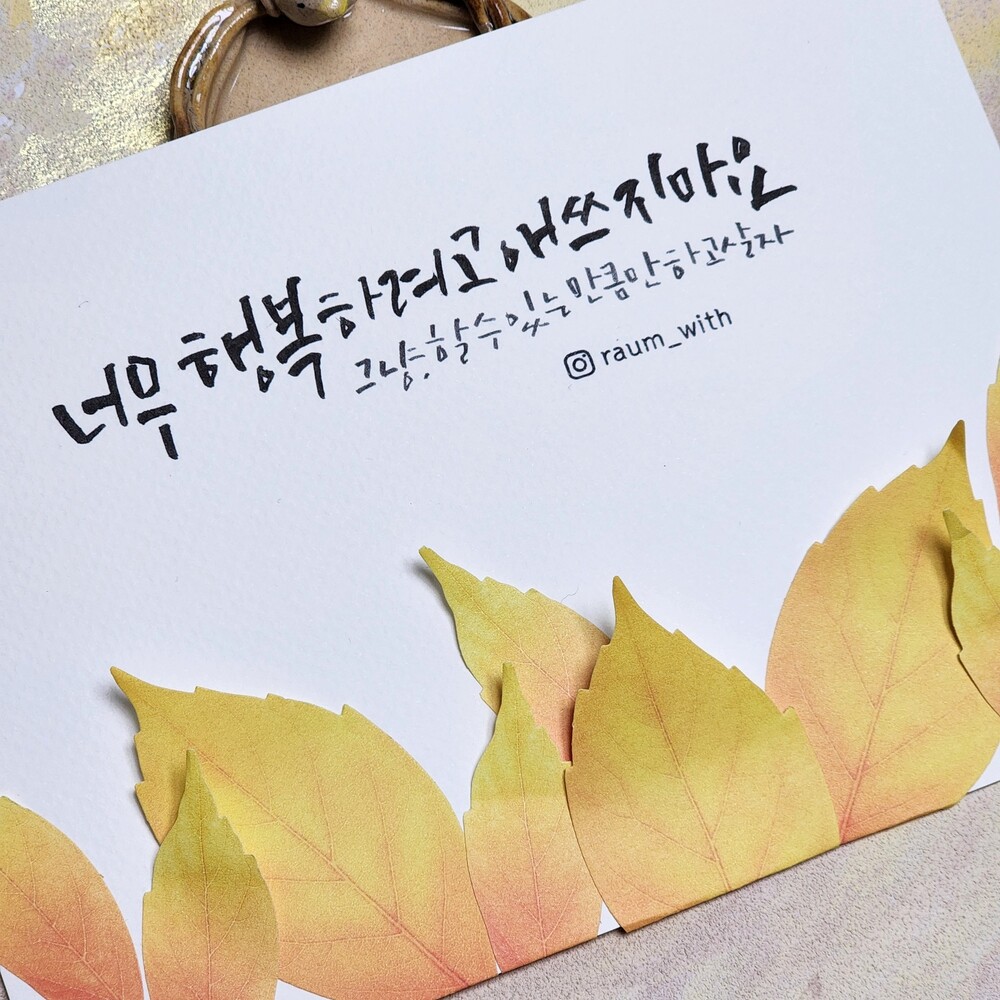 너무 행복하려고 애쓰지마요
그냥. 할 수 있는 만큼만 하고 살자
raum_with